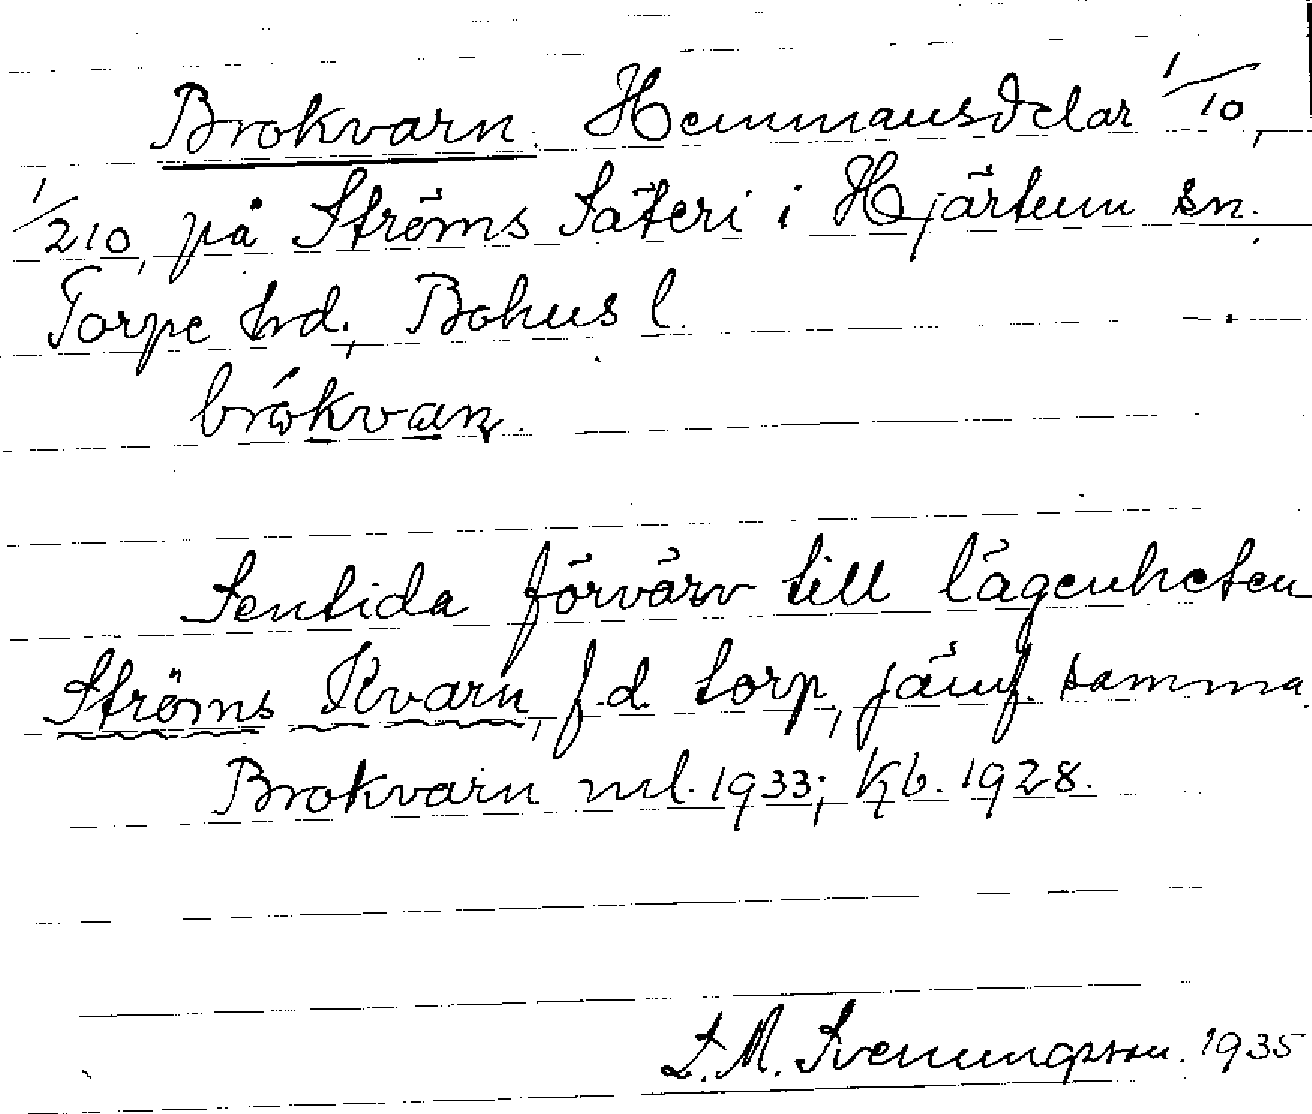 Brokvarn. Hemmansdelar 1/10,
1/210, på Ströms Säteri i Hjärtum sn.
Torpe hrd., Bohus l.
brókvaɳ.
Sentida förvärv till lägenheten
Ströms Kvarn, f.d. torp, jämf. samma.
Brokvarn ml. 1933; Kb. 1928.
L. M. Svenungsson. 1935